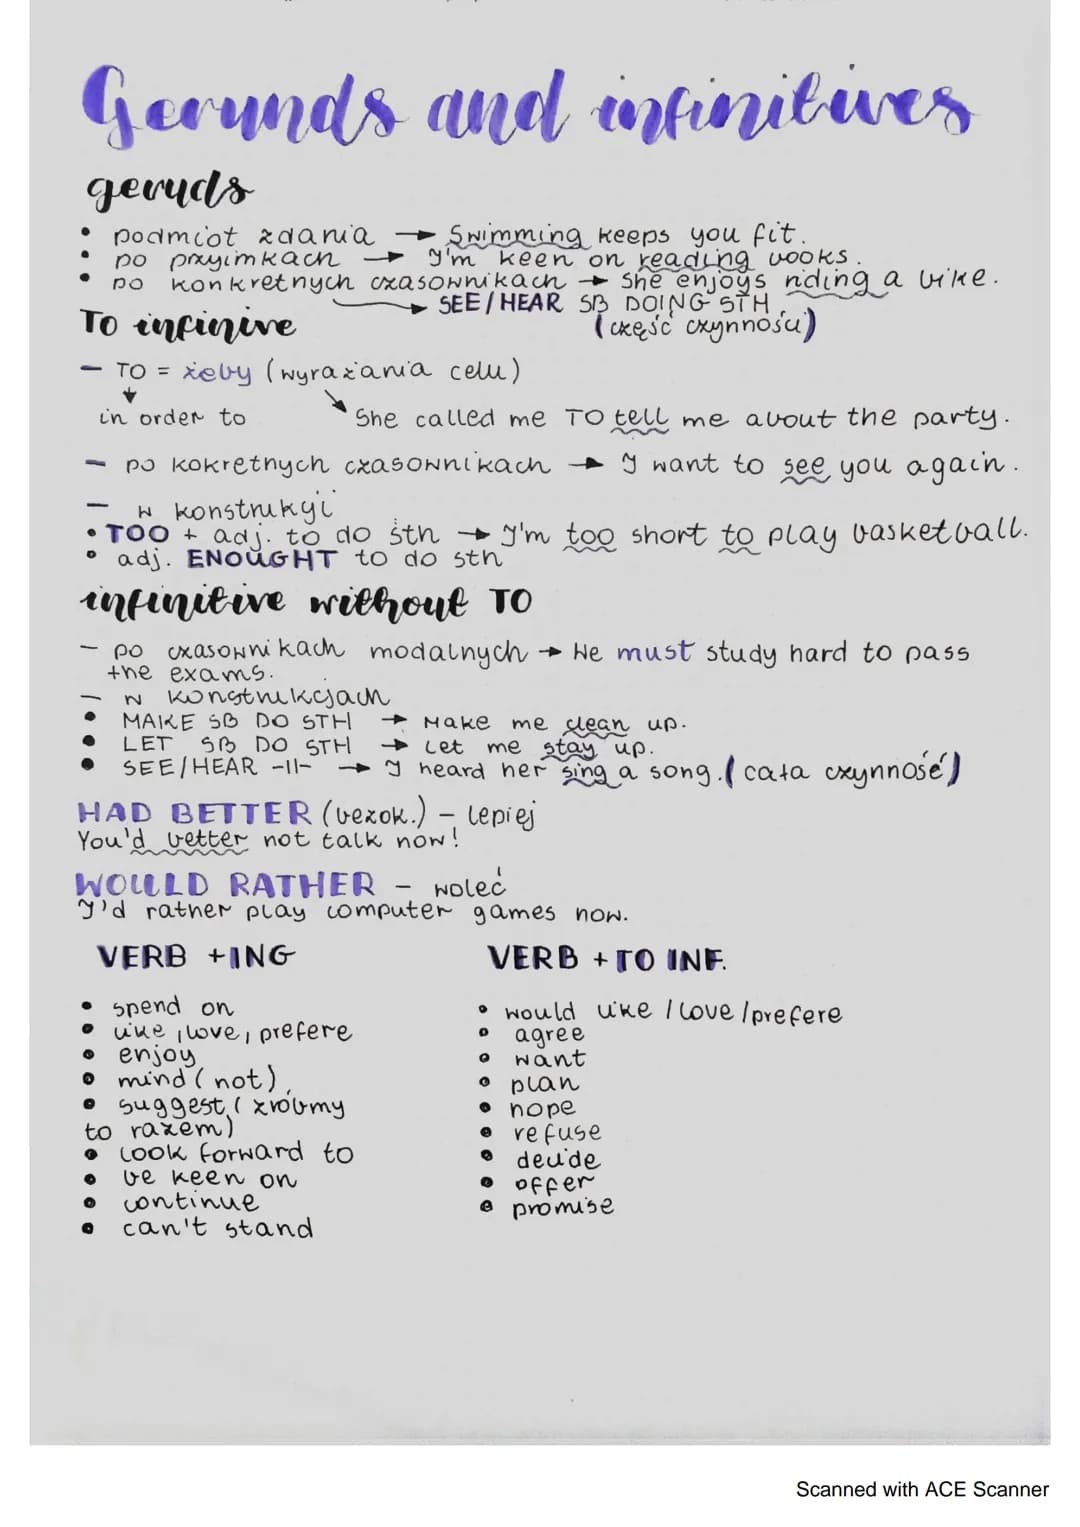 Gerunds and infinitives
geruds
• podmiot zdania → Swimming keeps you fit.
• po przyimkach → I'm keen on reading books.
• po konkretnych czasownikach → She enjoys riding a bike.
→ SEE/HEAR SB DOING STH
(część czynności)
To infinive
– TO = żeby (wyrażania celu)
in order to She called me TO tell me about the party.
– po kokretnych czasownikach → I want to see you again.
– w konstrukyi
• TOO + adj. to do sth → I'm too short to play basketball.
• adj. ENOUGHT to do sth
infinitive without TO
– po czasownikach modalnych → He must study hard to pass
the exams.
– w konstrukcjach
• MAKE SB DO STH → Make me clean up.
• LET SB DO STH → Let me stay up.
• SEE/HEAR -II- → I heard her sing a song. (cała czynność)
HAD BETTER (bezok.) – lepiej
You'd better not talk now!
WOULD RATHER – woleć
I'd rather play computer games now.
VERB +ING VERB + TO INF.
• spend on • would like / love / prefere
• like, love, prefere • agree
• enjoy • want
• mind (not) • plan
• suggest (zróbmy • hope
to razem) • refuse
• look forward to • decide
• be keen on • offer
• continue • promise
• can't stand
Scanned with ACE Scanner